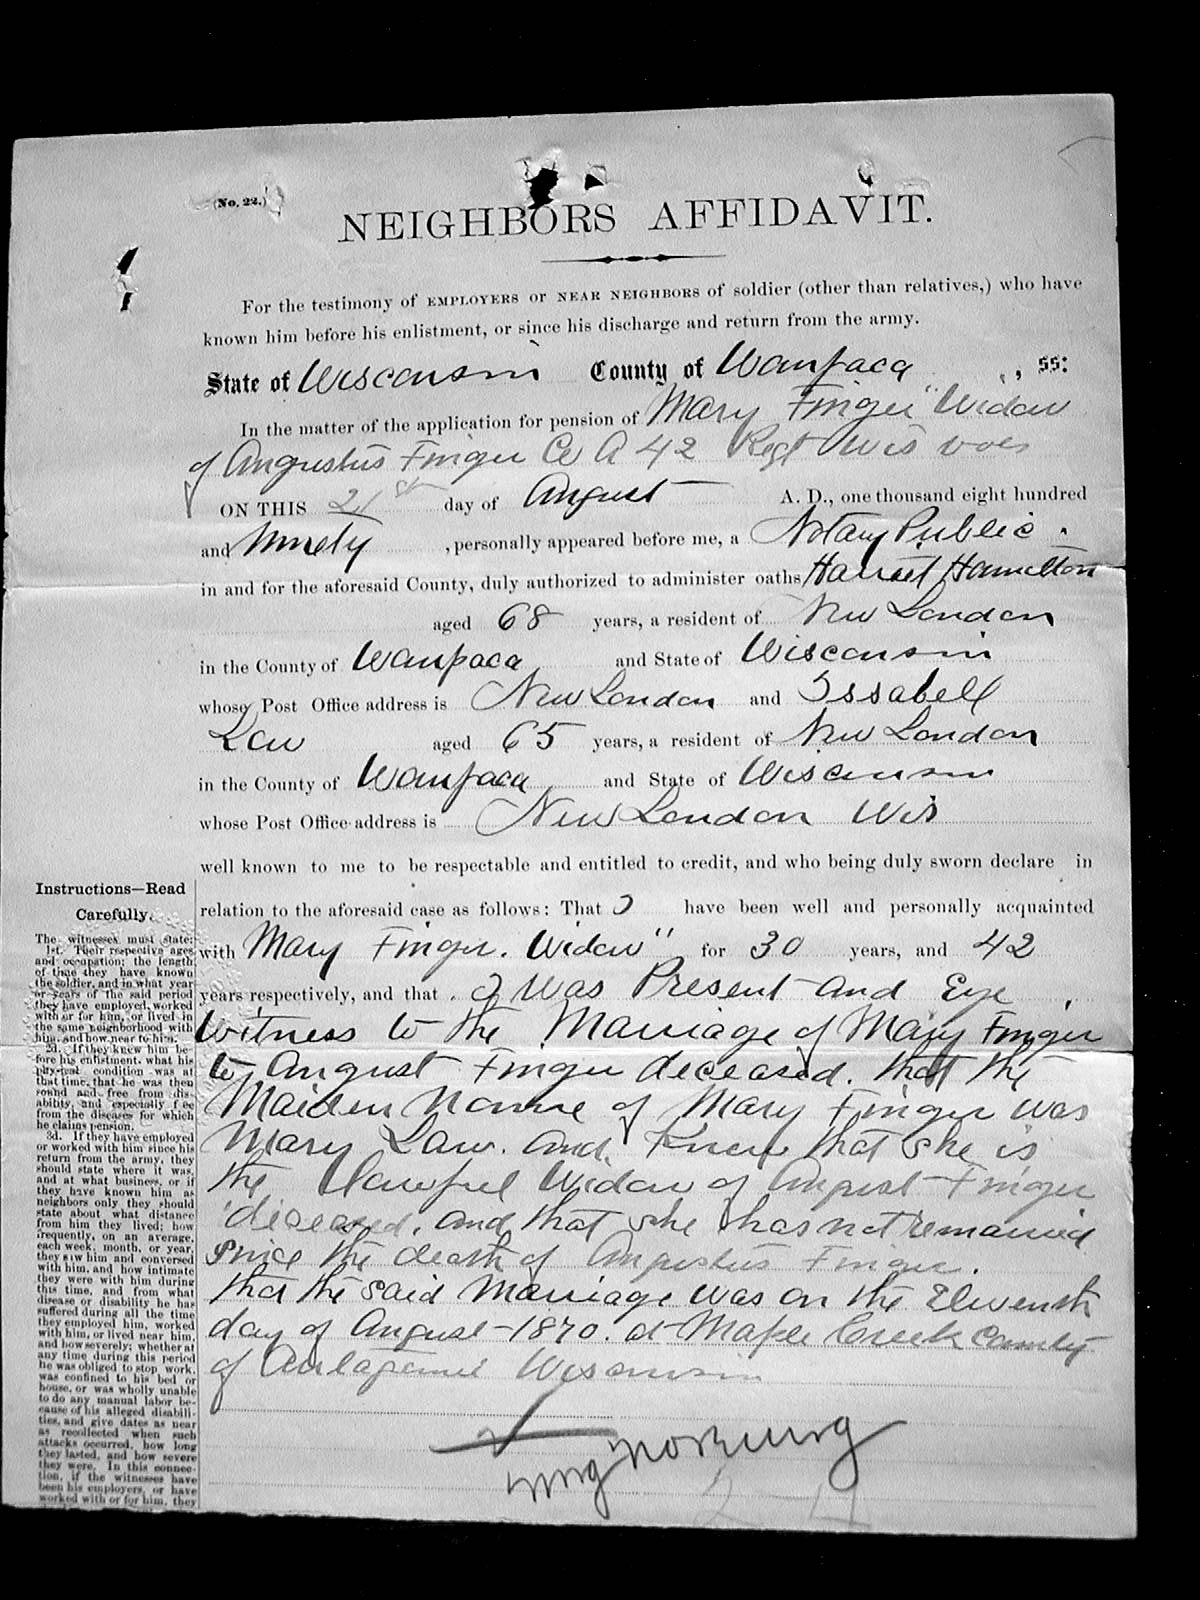 (No. 22.)
NEIGHBORS AFFIDAVIT.
For the testimony of EMPLOYERS OR NEAR NEIGHBORS of soldier (other than relatives,) who have
known him before his enlistment, or since his discharge and return from the army.
State of Wisconsin County of Waupaca , ss:
In the matter of the application for pension of Mary Finger "Widow
of Augustus Finger Co A 42 Regt Wis vols
ON THIS 21st day of August A. D., one thousand eight hundred
and Ninety , personally appeared before me, a Notary Public .
in and for the aforesaid County, duly authorized to administer oaths Harriet Hamilton
aged 68 years, a resident of New London
in the County of Waupaca and State of Wisconsin
whose Post Office address is New London and Issabell
Law aged 65 years, a resident of New London
in the County of Waupaca and State of Wisconsin
whose Post Office address is New London Wis
well known to me to be respectable and entitled to credit, and who being duly sworn declare in
relation to the aforesaid case as follows: That I have been well and personally acquainted
with Mary Finger. Widow" for 30 years, and 42
years respectively, and that . I was Present and Eye
Witness to the Marriage of Mary Finger
to August Finger deceased. that the
Maiden Name of Mary Finger was
Mary Law. and Know that she is
the Lawful Widow of August Finger
deceased. and that she has not remarried
Since the death of Augustus Finger.
that the said Marriage was on the Eleventh
day of August - 1870. at Maple Creek County
of Outagamie Wisconsin
Instructions—Read
Carefully.
The witnesses must state:
1st. Their respective ages
and occupation; the length
of time they have known
the soldier, and in what year
or years of the said period
they have employed, worked
with or for him, or lived in
the same neighborhood with
him, and how near to him.
2d. If they knew him be-
fore his enlistment, what his
physical condition was at
that time, that he was then
sound and free from dis-
ability, and especially free
from the diseases for which
he claims pension.
3d. If they have employed
or worked with him since his
return from the army, they
should state where it was,
and at what business, or if
they have known him as
neighbors only they should
state about what distance
from him they lived; how
frequently, on an average,
each week, month, or year,
they saw him and conversed
with him, and how intimate
they were with him during
this time, and from what
disease or disability he has
suffered during all the time
they employed him, worked
with him, or lived near him,
and how severely; whether at
any time during this period
he was obliged to stop work,
was confined to his bed or
house, or was wholly unable
to do any manual labor be-
cause of his alleged disabili-
ties, and give dates as near
as recollected when such
attacks occurred, how long
they lasted, and how severe
they were. In this connec-
tion, if the witnesses have
been his employers, or have
worked with or for him, they